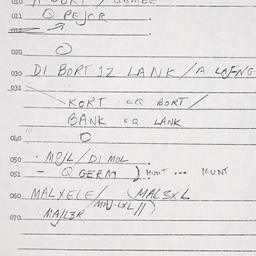 010
011 Q PEJCR
012
020
030 DI BORT IZ LANK / A LAJ-NG
031
KORT EQ BORT /
BANK EQ LANK
040
050 - MOJL / DI MOL
051 - Q GERM ) MUNT --- MUNT
060 MALXELE / (MAL3XL
MAJ-LXL //)
070 MAJL3R